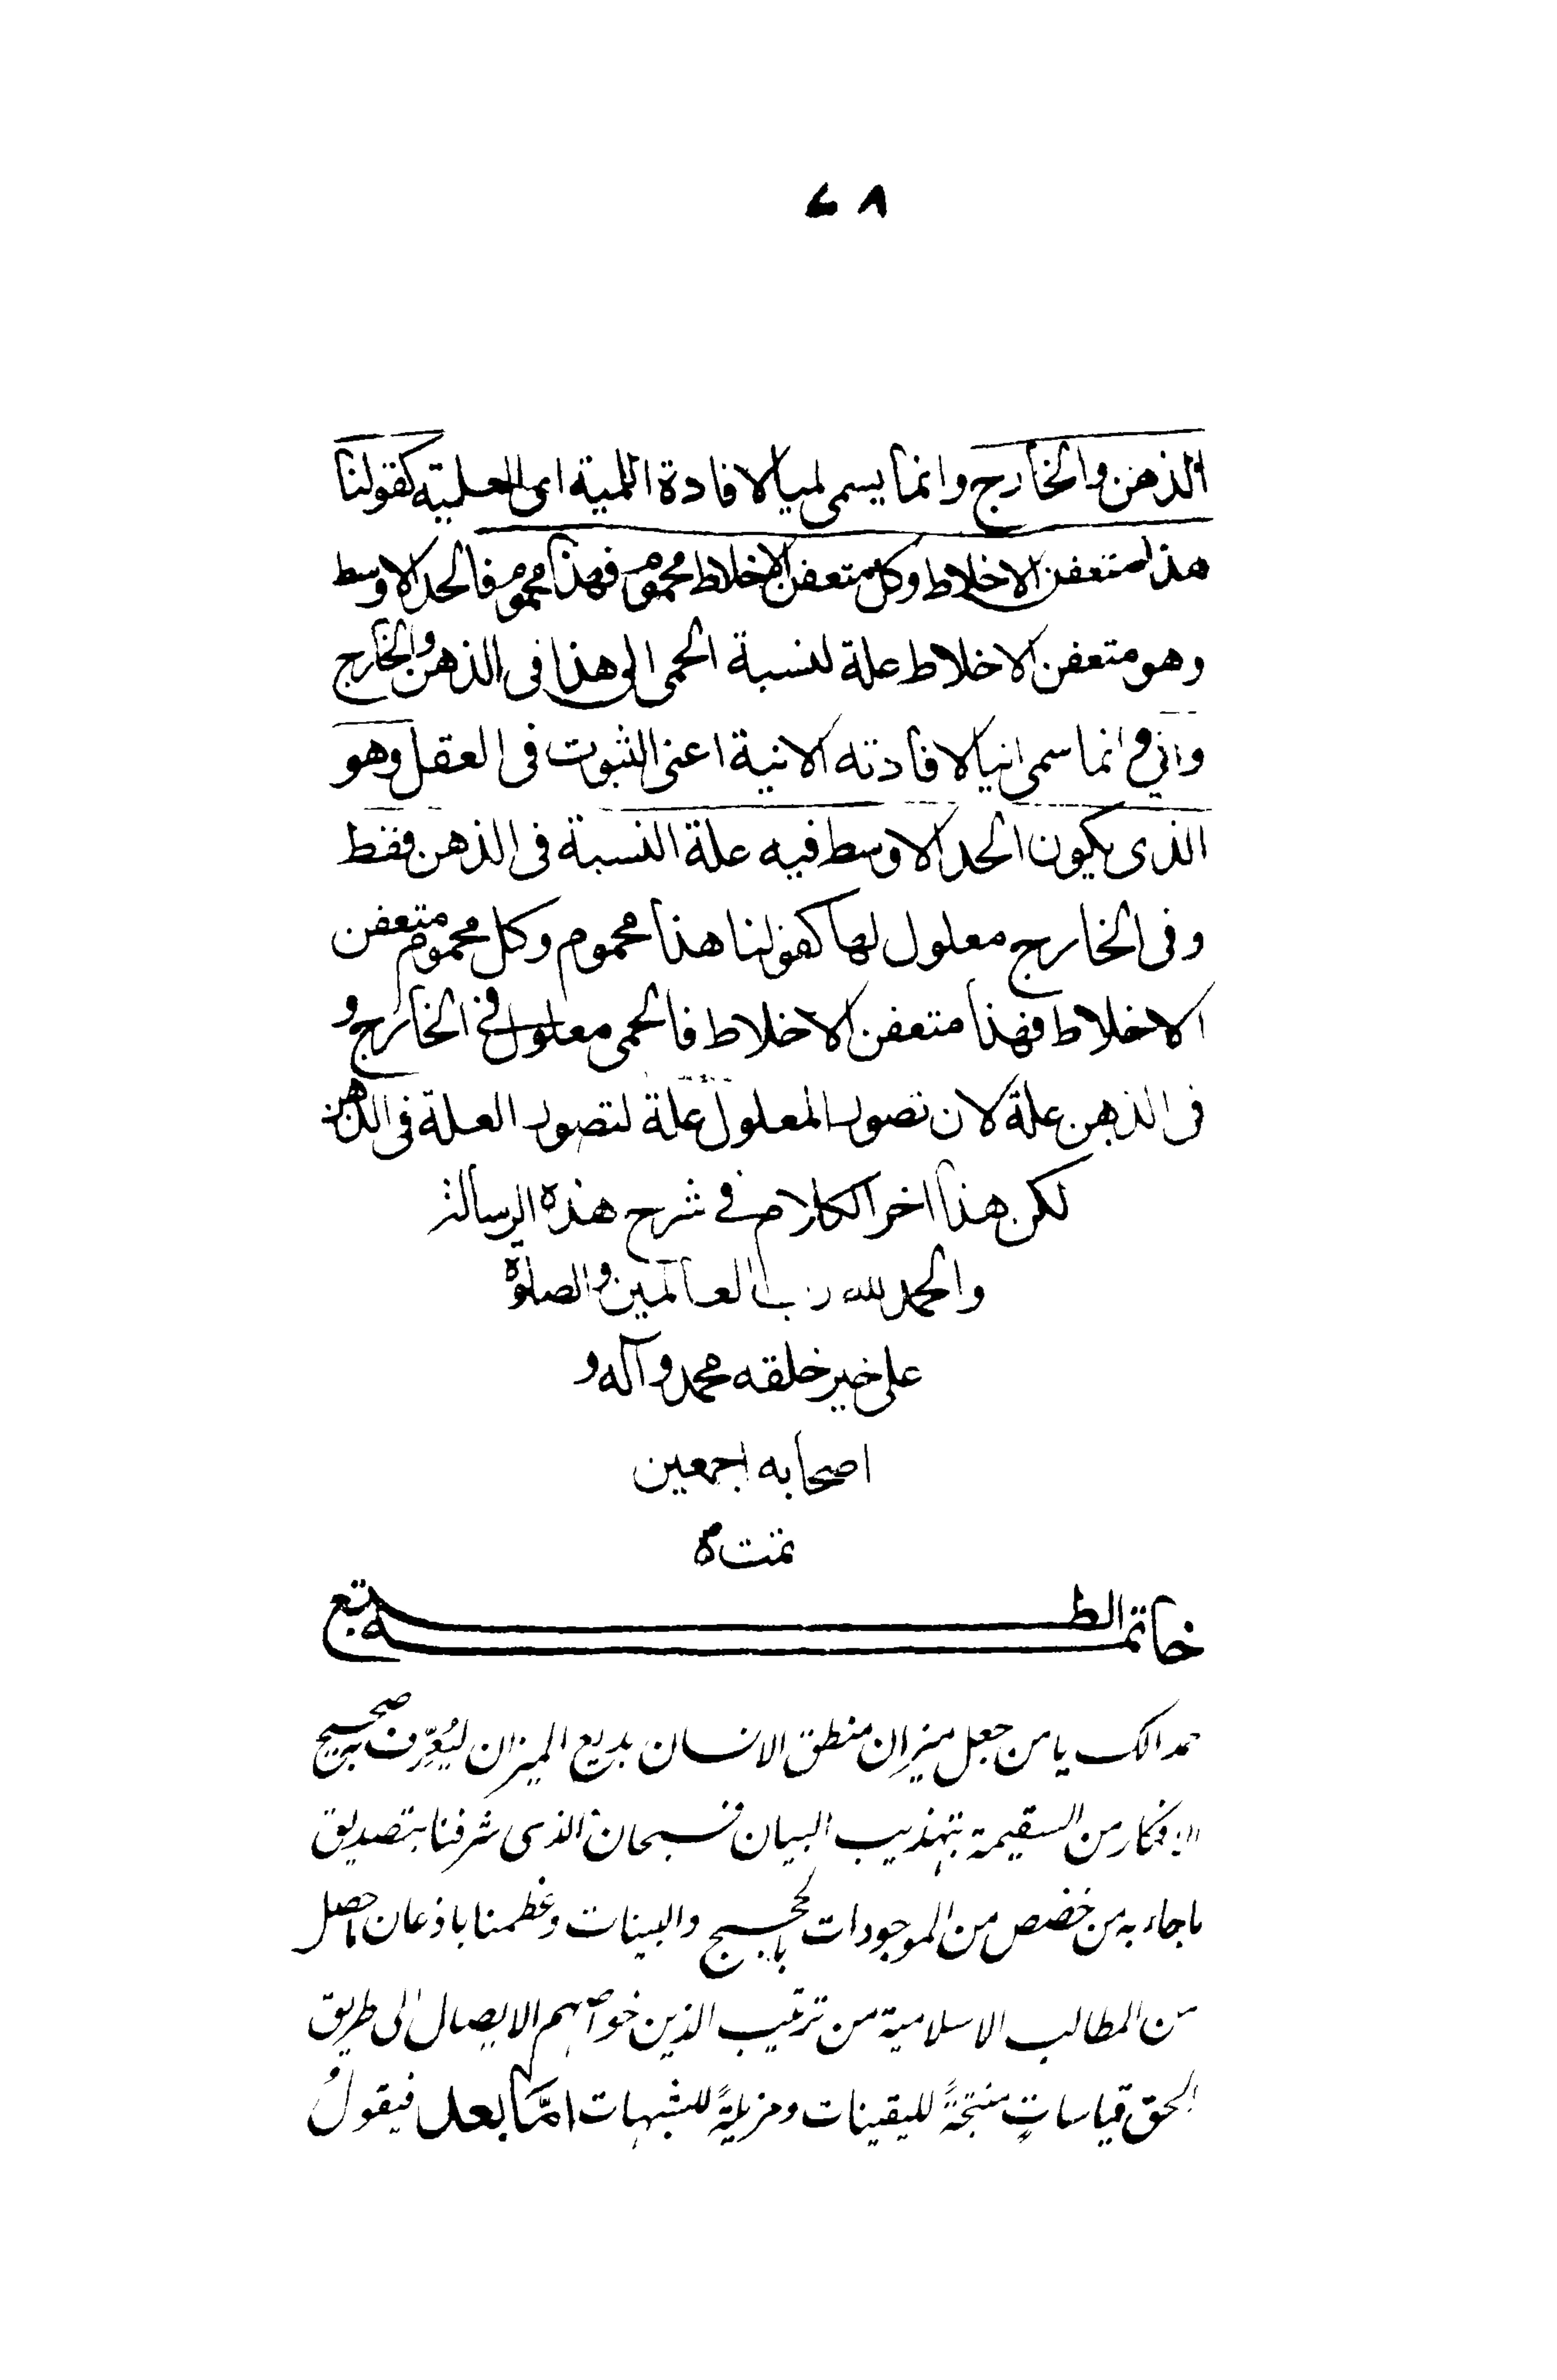 ٤٨
الذهن والخارج وانما يسمى لميا لافادة اللمية اى العلية كقولنا
هذا متعفن الاخلاط وكل متعفن الاخلاط محموم فهذا محموم فالحد الاوسط
وهو متعفن الاخلاط علة لنسبة الحمى الى هذا فى الذهن والخارج
واني وانما سمى انيا لافادته الانية اعنى الثبوت فى العقل وهو
الذى يكون الحد الاوسط فيه علة النسبة فى الذهن فقط
وفى الخارج معلول لها كقولنا هذا محموم وكل محموم متعفن
الاخلاط فهذا متعفن الاخلاط فالحمى معلول في الخارج و
فى الذهن علة لان تصور المعلول علة لتصور العلة فى الذهن
لكن هذا اخر الكلام في شرح هذه الرسالة
والحمد لله رب العالمين والصلوة
على خير خلقه محمد وآله و
اصحابه اجمعين
تمت
خاتمة الطبع
حمدا لك يا من جعل ميزان منطق الانسان بديع الميزان ليُعرِّف به صحيح
الافكار من السقيمة بتهذيب البيان فسبحان الذى شرفنا بتصديق
ما جاء به من خصص من الموجودات بالحجج والبينات وعظمنا باذعان ما حصل
من المطالب الاسلامية من ترتيب الذين خواصهم الايصال الى طريق
الحق قياساتٍ منتجةً لليقينات ومزيلةً للشبهات امَّا بعد فيقولُ